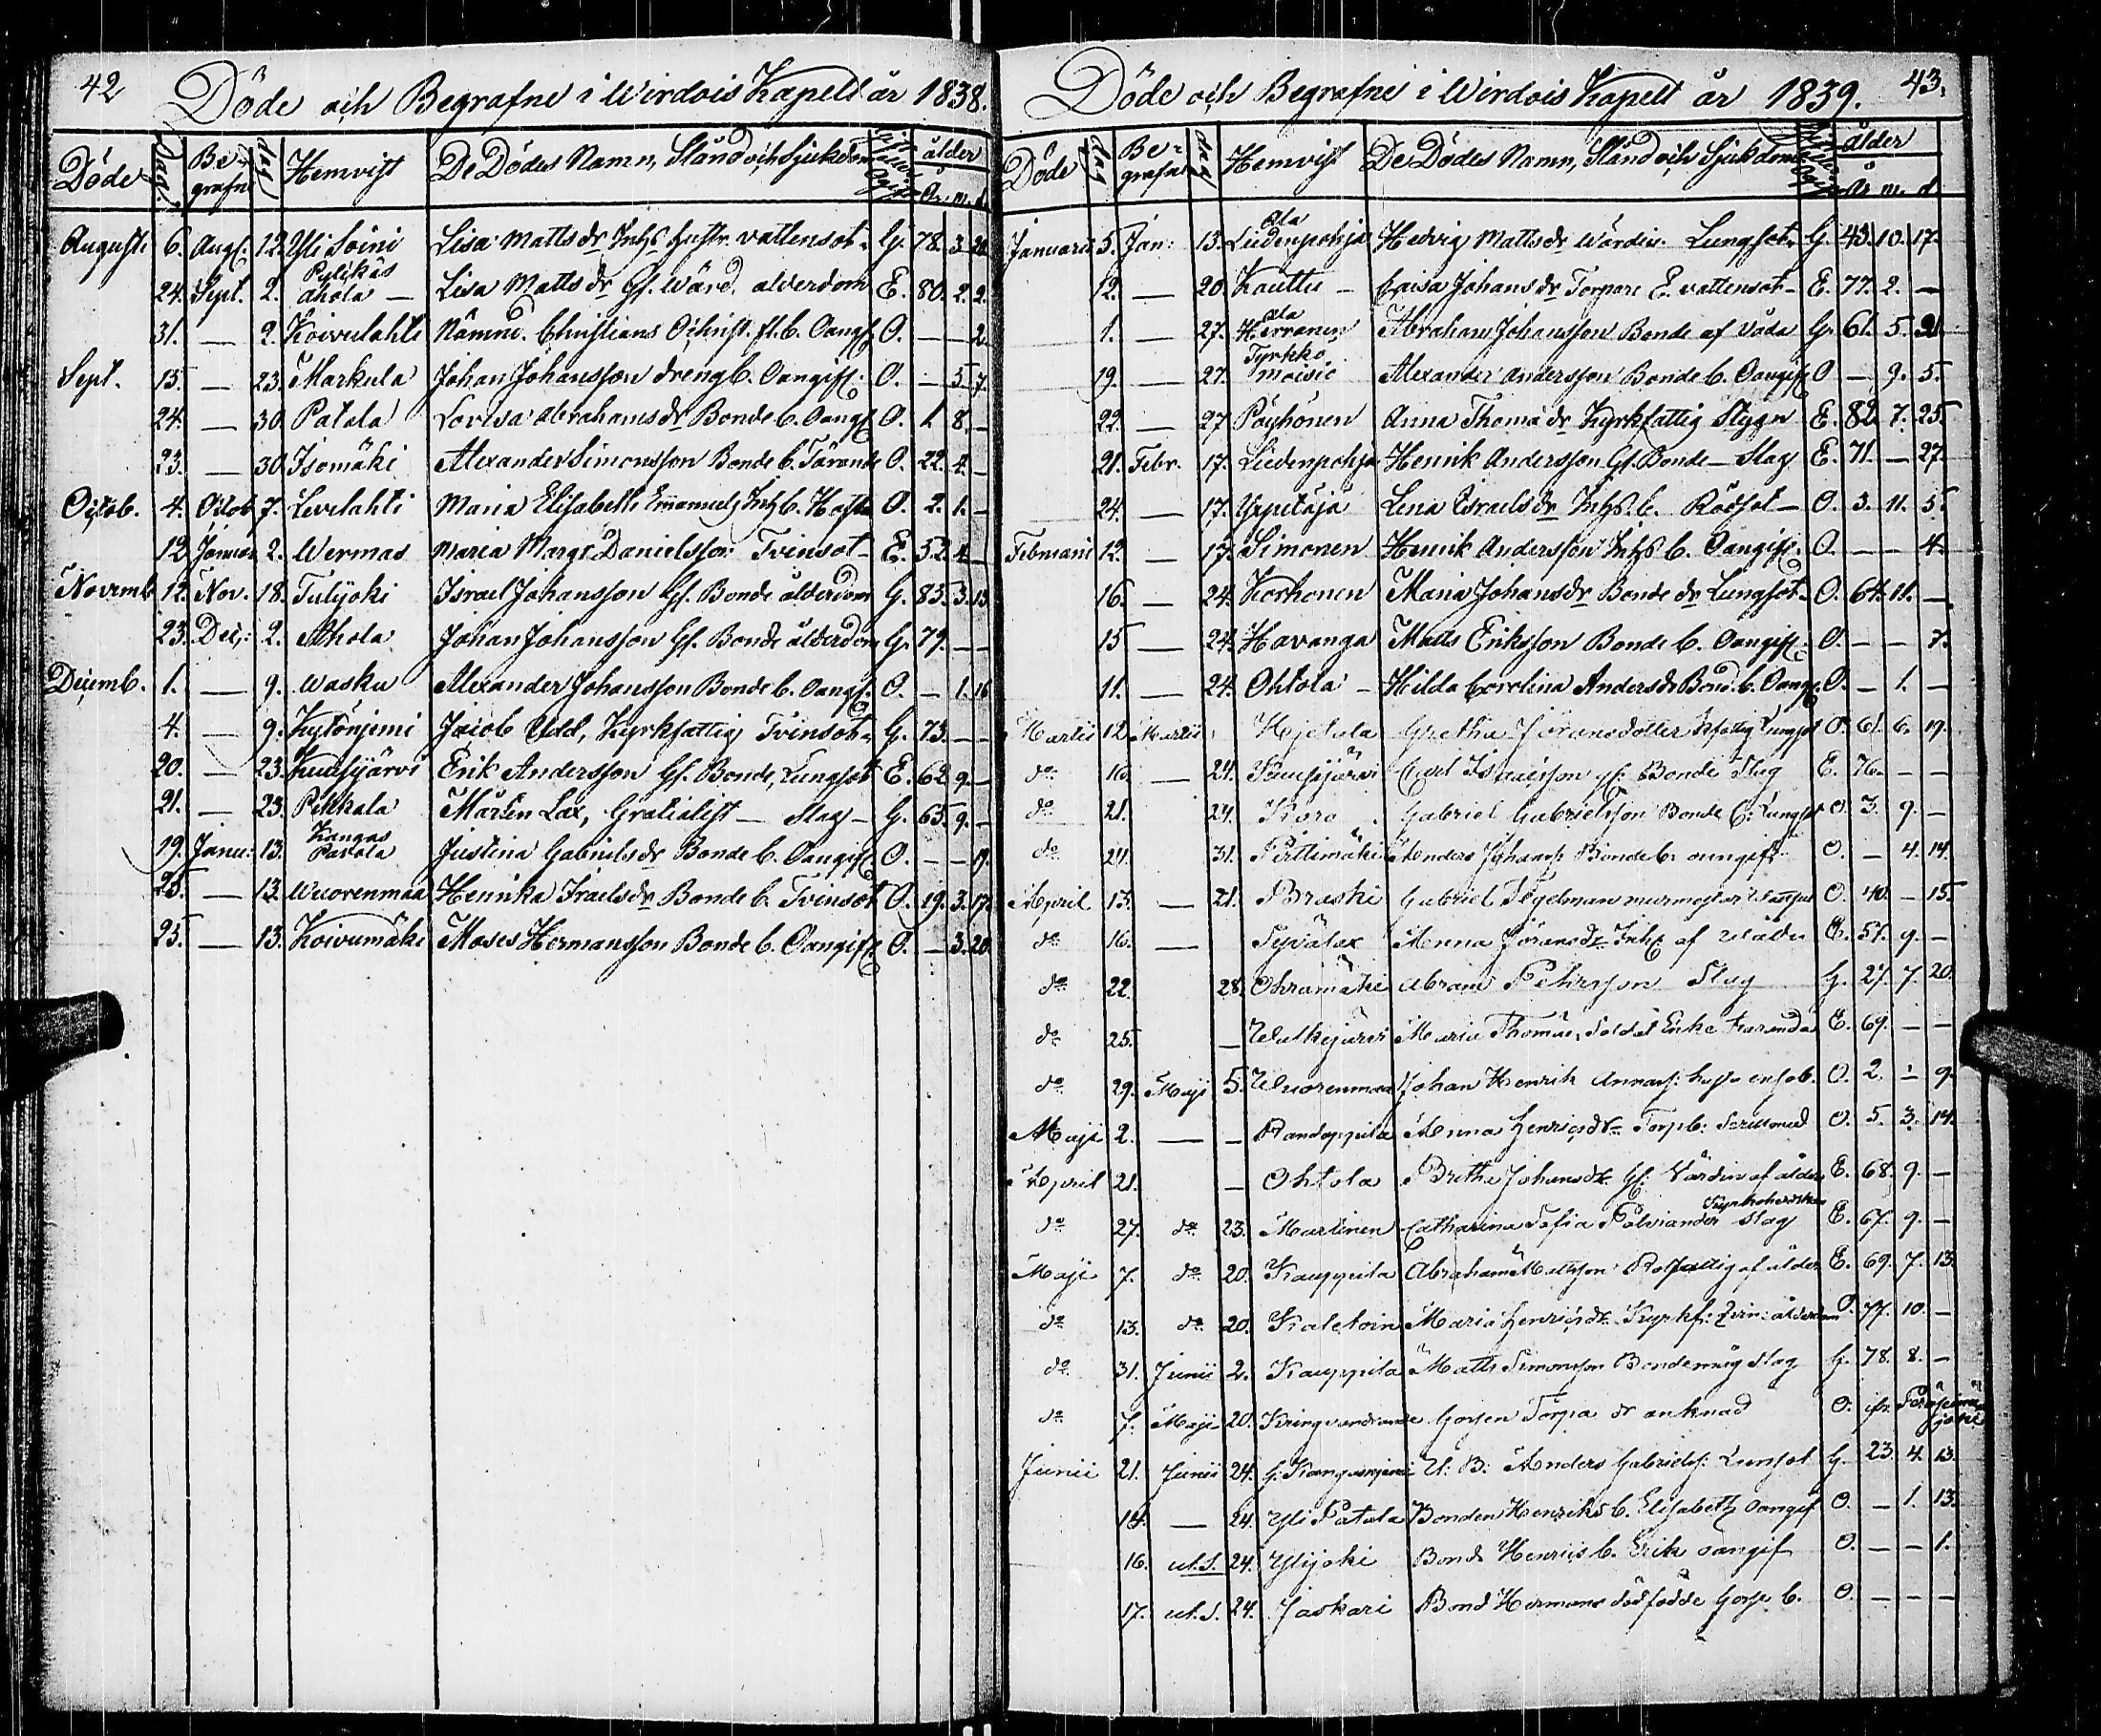 42
Döde och Begrafne i Wirdois Kapell år 1838.
Döde Dag Be-grafne dag Hemvist De Dödes Namn, Stånd och Sjukdom ålder År. m. d.
Augusti 6. Aug. 12. Yli Soini Lisa Matts dr Inhs hustr. vattensot G. 78. 3. 20
24. Sept. 2. Pylikäs Ahola — Lisa Matts dr Gf. Wärd. alderdom E. 80. 2. 2.
31. — 2. Koivulahti Nämnd. Christians Ochrist. fl. b. Oangif. O. — — 2.
Sept. 15. — 23. Markula Johan Johansson dreng b. Oangif. O. — 5. 7.
24. — 30. Patala Lovisa Abrahams dr Bonde b. Oangf. O. 1. 8. —
23. — 30. Isomäki Alexander Simonsson Bonde b. Tärande O. 22. 4. —
Octob. 4. Octob. 7. Levelahti Maria Elisabeth Emanuels Inhs b. Hosta O. 2. 1. —
12. 2. Wermas Maria Margr. Danielsson Tvinsot E. 52. 4. —
Novemb. 12. Nov. 18. Tulijoki Israel Johansson Gf. Bonde ålderdom G. 83. 3. 13
23. Dec: 2. Ahola Johan Johansson Gf. Bonde ålderdom G. 79. — —
Decemb. 1. — 9. Wasku Alexander Johansson Bonde b. Oangf. O. — 1. 16
4. — 9. Kytönjemi Jacob Udd, Kyrkfattig Tvinsot G. 73. — —
20. — 23. Kuusijärvi Erik Andersson Gf. Bonde, Lungsot E. 62 9. —
21. — 23. Pikkala Mårten Lax, Gratialist — Slag — G. 65. 9. —
19. Janu: 13. Kangas Patala Justina Gabriels dr Bonde b. Oangif. O. — — 19.
25. — 13. Wuorenmaa Henrika Israels dr Bonde b. Tvinsot O. 19. 3. 17.
25. — 13. Koivumäki Moses Hermansson Bonde b. Oangif. O. — 3. 20
43.
Döde och Begrafne i Wirdois Kapell år 1839.
Döde dag Be-grafne dag Hemvist De Dödes Namn, Stånd och Sjukdom ålder År m. d
Januarii 5. Jan: 13. Ala Liedenpohja Hedvig Matts dr Wärdin. Lungsot G. 43. 10. 17.
12. — 20. Kauttu — Caisa Johans dr Torpare E. vattensot — E. 77. 2. —
1. — 27. Ala Herranen Abraham Johansson Bonde af Våda G. 61. 5. 21
19. — 27. Tyrkko moisio Alexander Andersson Bonde b. Oangif O — 9. 5.
22. — 27 Pöyhönen Anna Thomæ dr Kyrkfattig Stygn E. 82. 7. 25.
21. Febr. 17. Liedenpohja Henrik Andersson Gf. Bonde — Slag E. 71. — 27
24. — 17. Yppitäjä Lena Israels dr Inhs. b. Rödsot — O. 3. 11. 5.
Februarii 12. — 17. Simonen Henrik Andersson Inhs b. Oangif. O. — — 4.
16. — 24. Korhonen Maria Johans dr Bonde dr Lungsot O. 64. 11. —
15 — 24. Havanga Matts Eriksson Bonde b. Oangif. O. — — 7.
11. — 24. Ohtola — Hilda Carolina Anders dr Bond. b. Oangf. O. — 1. —
Martii 12. Martii Hjetala Gretha Jöransdotter Lungsot O. 61. 6. 19.
do 16. — 24. Kuusijärvi Carl Isracsson gf. Bonde Slag E. 76. — —
do 21. 24. Koro Gabriel Gabrielsson Bonde b. Lungsot O. 3. 9. —
do 24. 31. Pirttimäki Anders Johanss: Bonde b. oangif. O. — 4. 14.
April 13. — 21. Braski Gabriel Tegelman murmestar O. 40. — 15.
do 16. — Syvälax Anna Jöransdr Inhs af E. 57. 9. —
do 22. 28. Ohramäki Abram Pehrsson Slag G. 27. 7. 20.
do 25. — Walkejärvi Maria Thomæ, Soldat Enka E. 69. — —
do 29. Maji 5. Wuorenmaa Johan Henrik O. 2. — 9.
Maji 2. — — Randoppila Anna Henricsdr Torp b. O. 5. 3. 14.
April 21. — Ohtola Britha Johansdr Gf: Värdin af ålder E. 68. 9. —
do 27. do 23. Martinen Catharina Sofia Polviander Slag E. 67. 9. —
Maji 7. do 20. Kauppila Abraham Mattsson af ålder E. 69. 7. 13
do 13. do 20. Kaletoin Maria Henricsdr Kyrkf: ålderdom O. 77. 10. —
do 31. Junii 2. Kauppila Matts Simonsson Bondemåg Slag G. 78. 8. —
do 7. Maji 20. Kringvandrande Gossen Torpa dr anknad O.
Junii 21. Junii 24. G. Kangasnjemi U: B: Anders Gabrielss: Lunsot G. 23. 4. 13.
14. — 24. Yli Patala Bonden Henriks b. Elisabeth oangif O. — 1. 13.
16. ut. S. 24. Ylijoki Bond Henrics b. Erik oangif O. — — 1.
17. ut. S. 24. Jaskari Bond Hermans dödfödde Gosse b. O. — — —